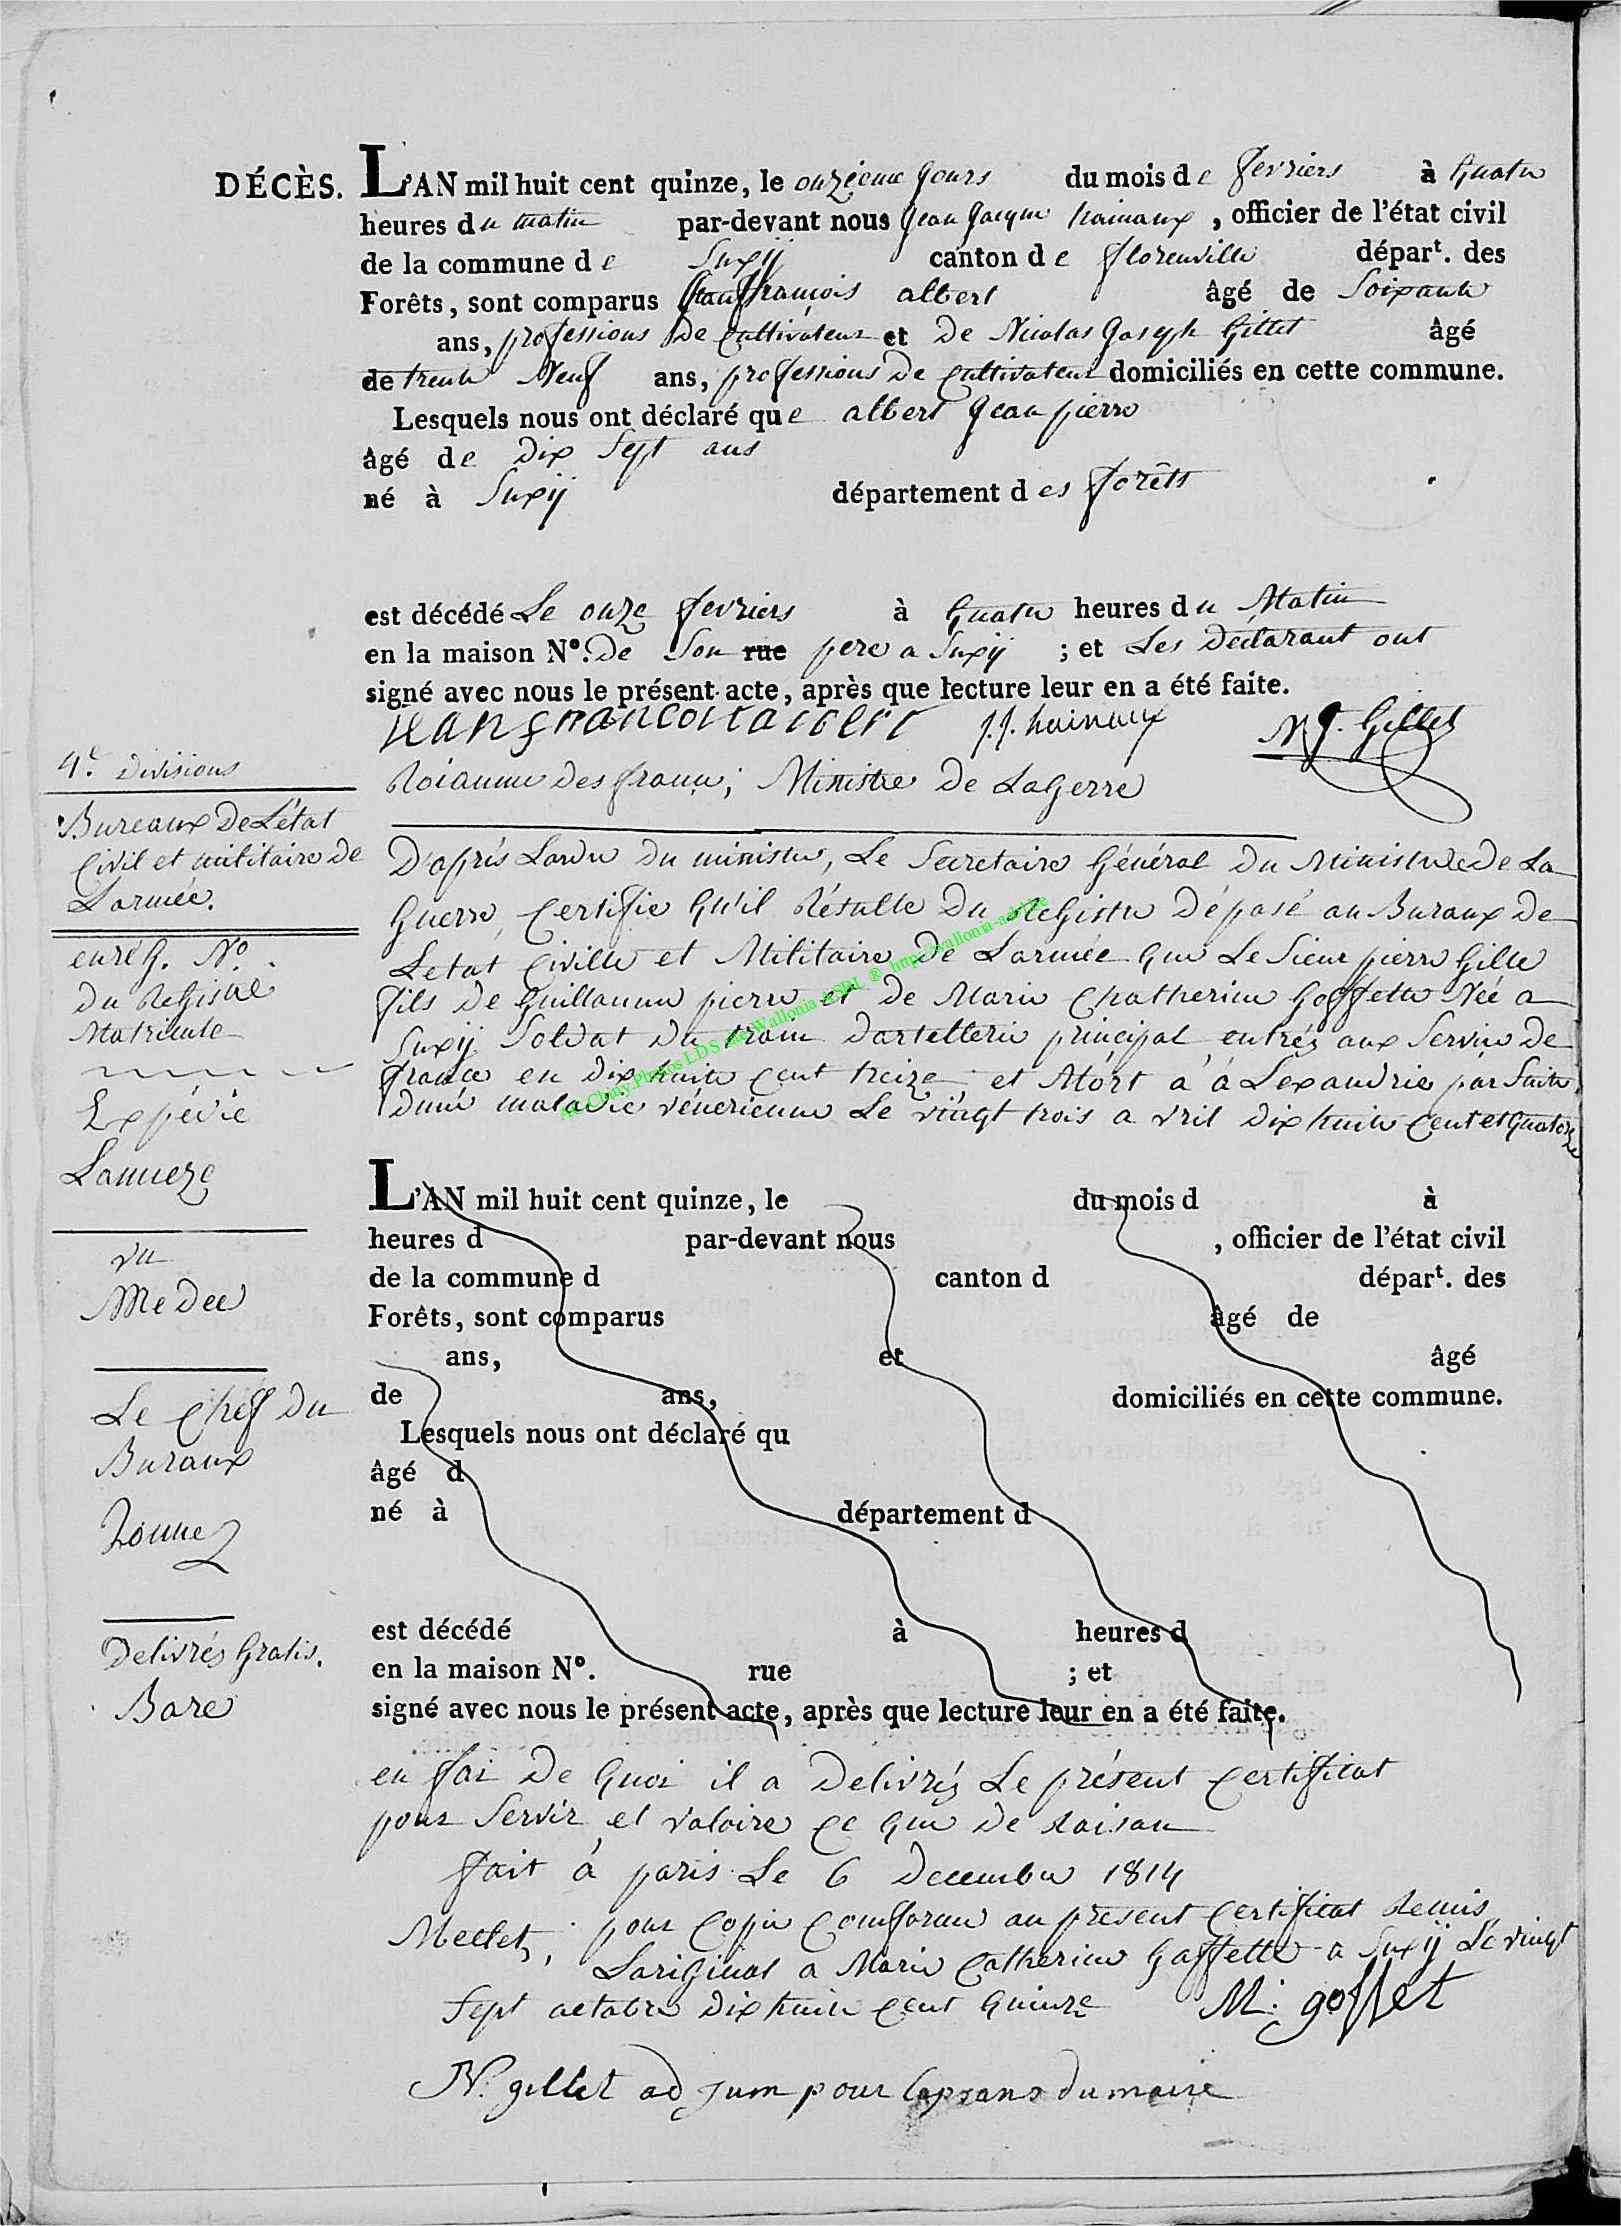 DÉCÈS. L'AN mil huit cent quinze, le onzieme Jours du mois de fevriers à Quatre
heures du matin par-devant nous Jean Jacque hainaux, officier de l'état civil
de la commune de Suxÿ canton de florenville départ. des
Forêts, sont comparus Jean françois albert âgé de Soixante
ans, professions De Cultivateur et De Nicolas Joseph Gillet âgé
de trente Neuf ans, professions De Cultivateur domiciliés en cette commune.
Lesquels nous ont déclaré que albert Jean pierre
âgé de Dix Sept ans
né à Suxÿ département des forêts
est décédé Le onze fevriers à Quatre heures du Matin
en la maison N°. De Son rue pere a Suxÿ ; et Les Déclarant ont
signé avec nous le présent acte, après que lecture leur en a été faite.
jean francoi albert j.j. hainaux N J. Gillet
4e. Divisions
Bureaux De L'état
Civil et militaire de
L'armée.
enreg. No.
Du Registre
Matricule
Expédié
Lamieze
vu
Me Dee
Le Chef Du
Buraux
Delivrés Gratis.
Bare
Roiaume Des france; Ministre De LaGerre
D'aprés Lordre Du ministre, Le Secretaire Général Du Ministre De La
Guerre, Certifie Qu'il Résulte Du Registre Déposé au Buraux De
Letat Civille et Militaire De L'armée Que Le Sieur pierre Gille
fils De Guillaume pierre et De Marie Chatherine Goffette Née a
Suxÿ Soldat Du train Dartellerie principal entrés aux Service De
france en Dix huite Cent treize et Mort a á Lexandrie par Suite
Dune maladie vénerienne Le vingt trois a vril Dix huite Cent et Quatorze
L'AN mil huit cent quinze, le du mois d à
heures d par-devant nous , officier de l'état civil
de la commune d canton d départ. des
Forêts, sont comparus âgé de
ans, et âgé
de ans, domiciliés en cette commune.
Lesquels nous ont déclaré qu
âgé d
né à département d
est décédé à heures d
en la maison N°. rue ; et
signé avec nous le présent acte, après que lecture leur en a été faite.
en foi De Quoi il a Delivrés Le présent Certificat
pour Servir et valoire Ce Que De Raison
fait á paris Le 6 Decembre 1814
pour Copie Comforme au présent Certificat Remis
Loriginal a Marie Catherine Goffette a Suxÿ Le vingt
Sept octobre Dix huite Cent Quinze M: goffet
N. gillet ad jum pour du maire